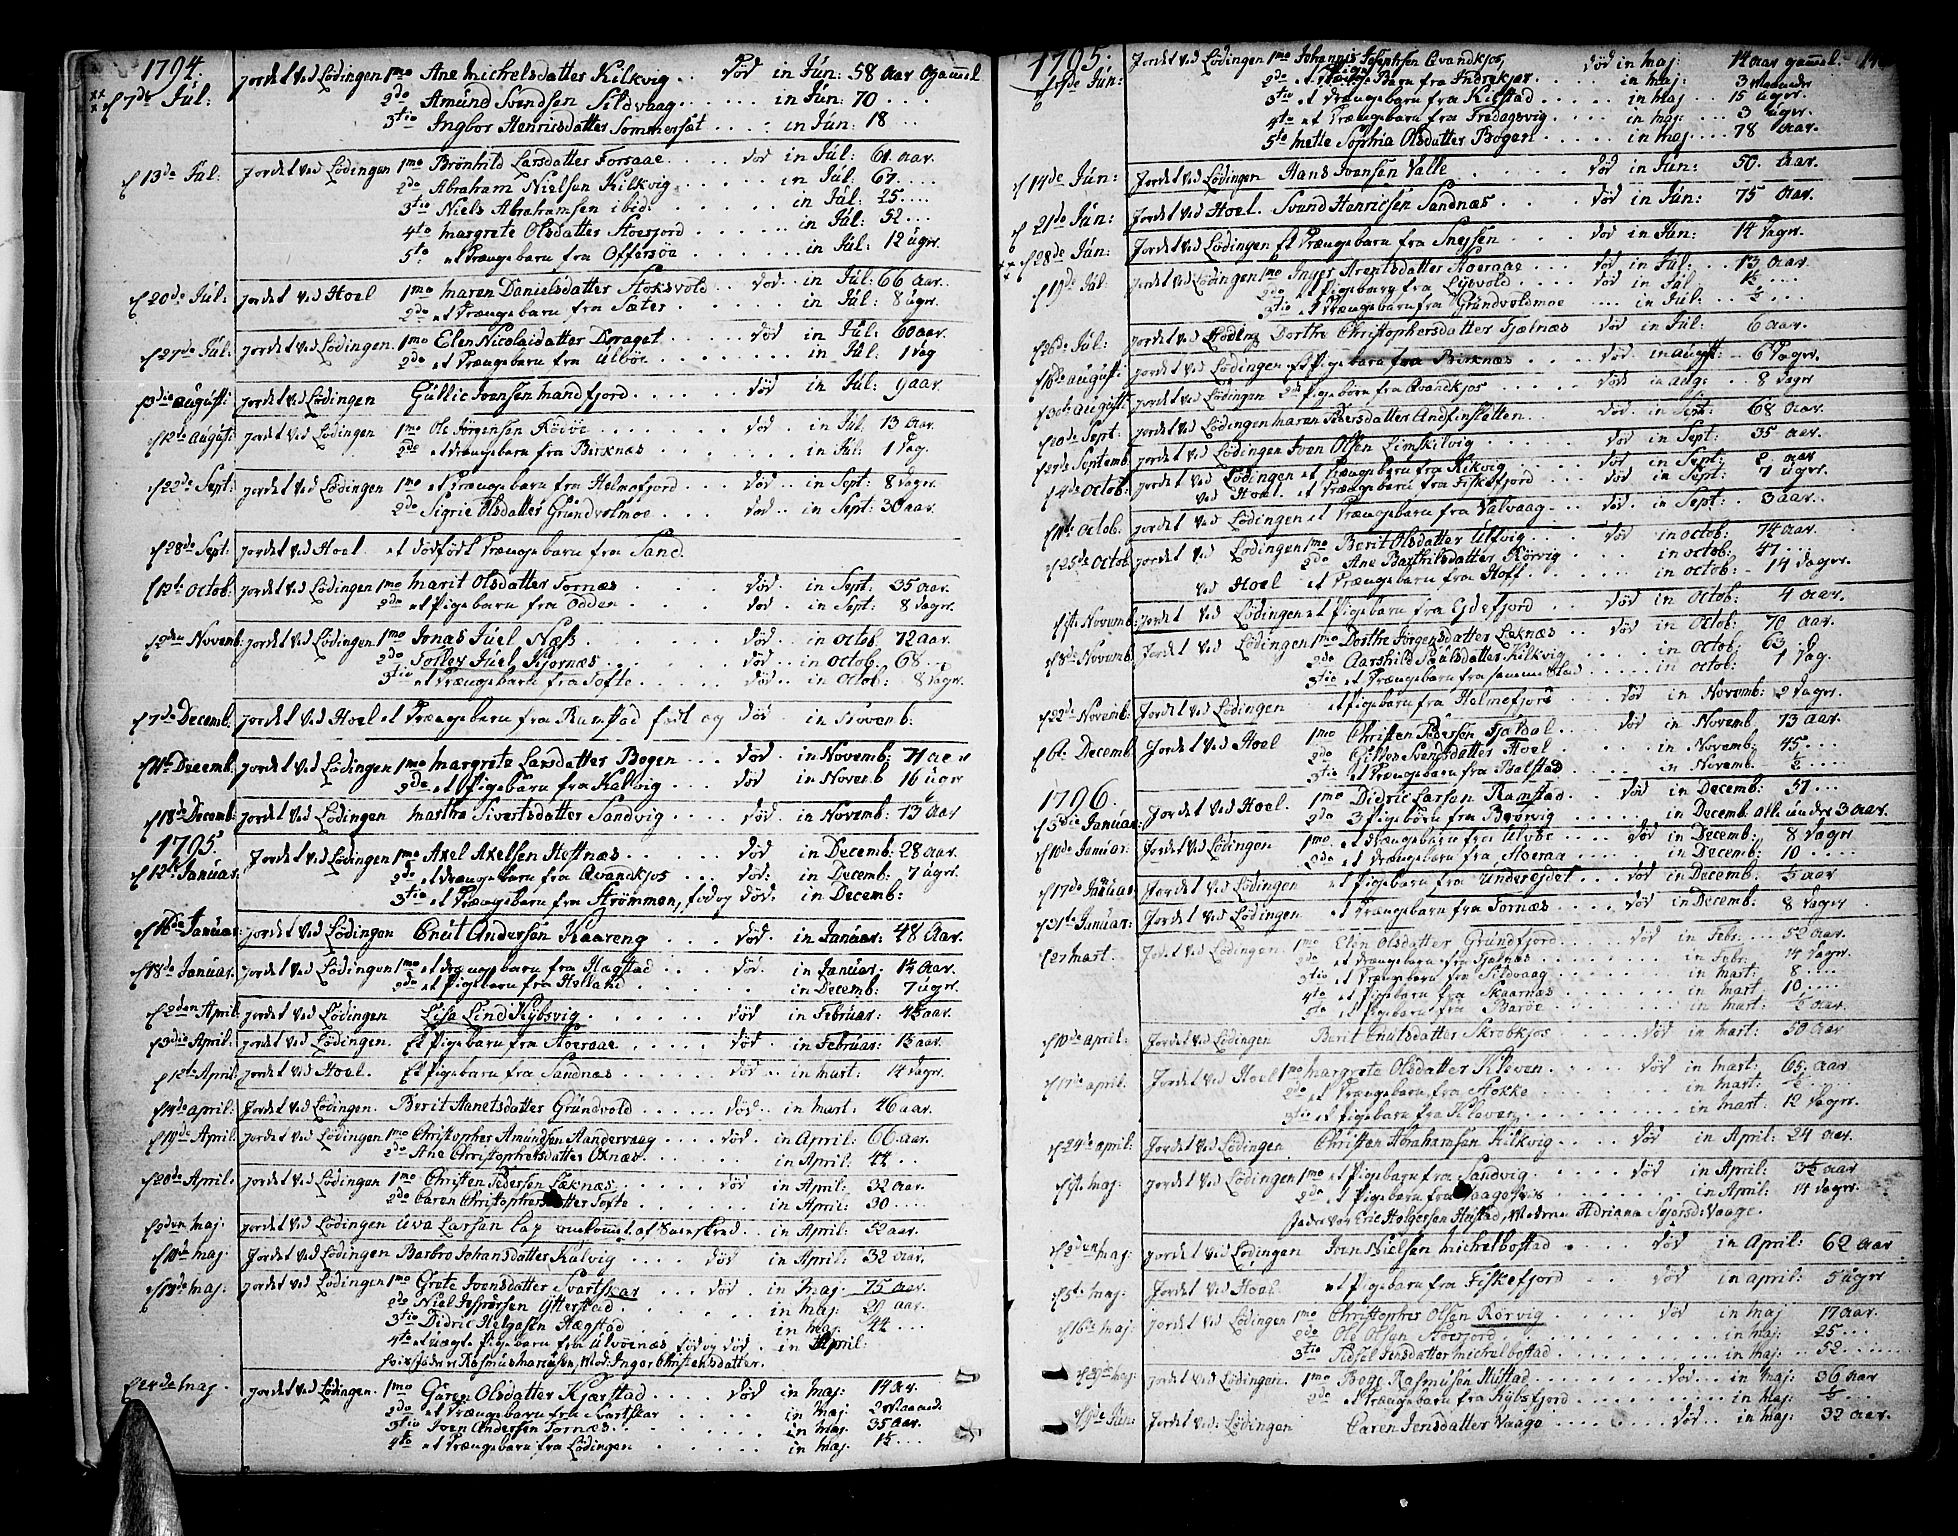 1794.
d 7de Júl: Jordet ved Lödingen 1mo Ane Michelsdatter Kilkvig .. död in Jún: 58 Aar Gammel
2do Amúnd Svendsen Sildvaag .... in Jún: 70 ...
3tio Ingbor Henricsdatter Sommerset .... in Jún: 18 ...
d 13de Júl: Jordet ved Lödingen 1mo Brönhild Larsdatter Forsaae .... död in Júl: 61 Aar.
2do Abraham Nielsen Kilkvig ..... in Júl: 61 ....
3tio Niels Abrahamsen ibid: ..... in Júl: 25 ....
4to Margrete Olsdatter Stoerfjord ..... in Júl: 52 ...
5to et Drængebarn fra Offersöe ..... in Júl: 12 úgr.
d 20de Júl: Jordet ved Hoel 1mo Maren Danielsdatter Stoksvold .. död .. in Júl: 66 Aar.
2do et Drængebarn fra Sæter ..... in Júl: 8 úgr.
d 27de Júl: Jordet ved Lödingen. 1mo Elen Nicolaidatter Draget ... död in Júl: 60 aar.
2do et Drængebarn fra Ulvöe ..... in Júl: 1 dag
d 3die August: Jordet ved Lödingen Gúllic Ivensen Mandfjord .... död in Júl: 9 aar.
d 12te August Jordet ved Lödingen 1mo Ole Jörgensen Rödöe ... död in Júl. 13 Aar.
2do et Drængebarn fra Birknæs ..... in Júl: 1 Dag.
d 22de Sept: Jordet ved Lödingen 1mo et Drængebarn fra Helmefjord .... död .. in Sept: 8 dagr.
2do Sigrie Olsdatter Gründvolmoe ... död .. in Sept: 30 aar.
d 28de Sept: Jordet ved Hoel et dödfödt Drængebarn fra Sand.
d 12te Octob. Jordet ved Lödingen 1mo Marit Olsdatter Tornæs .... död .. in Sept: 35 aar.
2do et Pigebarn fra Odden .... död .. in Sept: 8 dagr.
d 2den Novemb. Jordet ved Lödingen 1mo Jonas Júel Næss .... död .. in Octob. 72 aar.
2do Torlev Júel Kjornæs .... död .. in Octob. 68 ...
3tio et Drængebarn fra Tofte .... död .. in Octob: 8 dagr.
d 7de Decemb. Jordet ved Hoel et Drængebarn fra Ramstad födt og död .. in Novemb:
d 11te Decemb. Jordet ved Lödingen 1mo Margrete Larsdatter Bogen .. död. in Novemb: 71 aar
2do et Pigebarn fra Kalvig .... död in Novemb 16 úgr
d 18de Decemb. Jordet ved Lödingen Marthe Sivertsdatter Sandvig ... död. in Novemb: 73 Aar
1795.
d 12te Januar: Jordet ved Lödingen 1mo Axel Axelsen Hestnæs .... död in Decemb: 28 aar.
2do et Drængebarn fra Qvandkjos .... död: in Decemb: 7 úgr.
3tio et Drængebarn fra Strömmen, fød og död. in Decemb:
d 16de Januar: Jordet ved Lödingen Cnút Andersen Kaareng .. död. in Janúar: 48 Aar.
d 18de Januar. Jordet ved Lödingen 1mo et drængebarn fra Hægstad ... död. in Janúar: 1½ Aar.
2do et Pigebarn fra Helland ..... in Decemb: 7 úgr.
d 2den April: Jordet ved Lödingen Lisa Lind Kybsvig ..... död in Febrúar: 42 aar.
d 3die April: Jordet ved Lödingen. Et Pigebarn fra Stoeraae .... död. in Febrúar: 1½ Aar.
d 12te April: Jordet ved Hoel. Et Pigebarn fra Sandnæs .... död .. in Mart: 14 dagr.
d 14de april: Jordet ved Lödingen. Berit Aanetsdatter Gründvold .... död .. in Mart: 46 aar.
d 19de April: Jordet ved Lödingen 1mo Christopher Amúndsen Aandervaag .... död. in April: 66 Aar.
2do Ane Christophersdatter Oxnæs ..... in April: 44 ...
d 20de April: Jordet ved Lödingen 1mo Christen Pedersen Læknæs .... död in April: 32 Aar.
2do Caren Christophersdatter Tofte ..... in April: 30 ....
d 2den Maj: Jordet ved Lödingen Uva Larsen Lap omkommet af Snerskred ... in April: 52 aar.
d 10de Maj: Jordet ved Lödingen Barbro Johansdatter Kalvig .... död in April: 32 Aar.
d 19de Maj: Jordet ved Lödingen 1mo Grete Ivensdatter Svartskar ... död. in Maj: 75 Aar.
2do Niel Jespersen Ytterstad ..... in Maj: 29 Aar.
3tio Didric Helgesen Hægstad ..... in Maj: 44 ...
4to et uægte Pigebarn fra Ulvöenæs, föd og död .. in April:
hvis fader er Rasmus Marcussen, Mod: Inger Christensdatter.
d 24de Maj. Jordet ved Lödingen 1mo Gúren Olsdatter Kjærstad .... död in Maj: 14 Aar.
2do et Drængebarn fra Svartskar ..... in Maj: 2 Maaned.
3tio Iven Andersen Tornæs ..... in Maj: 35 aar.
4to et Drængebarn fra Lödingen ..... in Maj: 1½ ....
1795.
Jordet ved Lödingen 1mo Johannes Josephsen Qvandkjos, död in Maj: 14 aar gammel.
2do et Drænge Barn fra Indrekjær .... in Maj: 3 Maaneder
3tio et Drængebarn fra Kilstad ..... in Maj: 15 úgr.
4to et Drængebarn fra Fredagsvig .... in Maj: ... 3 úgr.
5to Mette Sophia Olsdatter Bogen .... in Maj: ... 78 Aar.
d 14de Jún: Jordet ved Lödingen Hans Ivensen Valle .... död in Jún: 50. Aar.
d 21de Jún: Jordet ved Hoel. Svend Henricsen Sandnæs .... död in Jún: 75 Aar.
d 28de Jún: Jordet ved Lödingen Et Drængebarn fra Snejsen .... död in Jún: 14 dagr.
d 19de Júl: Jordet ved Lödingen 1mo Inger Arentsdatter Stoeraae ... död in Júl: 13 Aar.
2do et Pigebarn fra Lysvold ... död in Júl 1½ ....
3tio et Drængebarn fra Gründvolsmoe .... in Júl: ... ½ ...
d 26de Júl: Jordet ved Löding Dorthe Christophersdatter Tjælnæs död in Júl: 6 aar.
d 16de August: Jordet ved Lödingen et Pigebarn fra Birknæs .... död in August: 6 Dagr.
d 30te August: Jordet ved Lödingen et Pigebarn fra Qvandkjos .... död in Aug: . 8 dagr
d 20de Sept: Jordet ved Lödingen Maren Pedersdatter Andfinsletten ... död. in Sept: 68 Aar.
d 27de Septemb: Jordet ved Lödingen Iven Olsen Limskilvig .... död .. in Sept: 35 aar.
d 4de Octob: Jordet ved Lödingen et Drængebarn fra Kikvig .... död in Sept: 2 aar
ved Hoel et Drængebarn fra Fiskefjord .... död in Sept: 7 úgr.
d 11te Octob: Jordet ved Lödingen et Drængebarn fra Valvaag .... död. in Sept: 3 aar.
d 25de Octob Jordet ved Lödingen 1mo Berit Olsdatter Ulkvig .... död in Octob: 74 Aar.
2do Ane Barthelsdatter Rörvig .... in Octob. 47 ...
ved Hoel et Drængebarn fra Hoff .... in Octob: 14 dagr.
d 1ste Novemb: Jordet ved Lödingen et Pigebarn fra Ejdefjord .... död in Octob: 4 aar.
d 8de Novemb Jordet ved Lödingen 1mo Dorthe Jörgensdatter Leknæs .. död in Octob: 70 aar.
2do Aarshild Paulsdatter Kilkvig .... in Octob: 63 ..
3tio et Drængebarn fra samme Stad .... in Octob: 1 Dag.
d 22de Novemb: Jordet ved Lödingen et Pigebarn fra Helmefjord .... död in Novemb: 2 dagr.
d 6te Decemb: Jordet ved Hoel 1mo Christen Pedersen Fjældal .... död in Novemb. 73 Aar.
2do Gilles Svendsdatter Hoel .... in Novemb: 45 ...
3tio et Drængebarn fra Balstad .... in Novemb. ½ ....
1796.
d 3die Januar: Jordet ved Hoel. 1mo Didric Larsen Ramstad .... död in Decemb: 51 ...
2do 3 Pigebørn fra Rørvig .... in Decemb alle under 3 Aar.
d 10de Januar: Jordet ved Lödingen 1mo et Drængebarn fra Ulvöe ... död in Decemb: 8 dagr.
2do et Drængebarn fra Stoeraa .... in Decemb: 10 ....
d 17de Januar Jordet ved Lödingen et Pigebarn fra Underejdet ... död in Decemb: ½ aar
d 31te Januar: Jordet ved Lödingen et Drængebarn fra Tornæs .... död in Decemb. 8 dagr
d 27 Mart. Jordet ved Lödingen. 1mo Elen Olsdatter Gründfjord .... död in Febr: ... 52 Aar.
2do et Drængebarn fra Tjælnæs .... in Febr: 14 dagr.
3tio et Drængebarn fra Sildvaag .... in Mart: 8 ....
4to et Pigebarn fra Skaarnæs .... in Mart 10 ....
5to et Pigebarn fra Baröe .... in Mart: ½ aar.
d 10de april: Jordet ved Lödingen Berit Cnútsdatter Skrobkjos .... död in Mart: 50 Aar
d 17de april: Jordet ved Hoel 1mo Margrete Olsdatter Kleven .... död in Mart: 65 aar.
2do et Drængebarn fra Stokke .... in Mart: ½ ...
3tio et Pigebarn fra Kleven .... in Mart 12 dagr.
d 24de april: Jordet ved Lödingen Christen Abrahamsen Kilkvig .... död in April: 24 Aar.
d 1ste Maj: Jordet ved Lödingen 1mo et Pigebarn fra Sandvig .... död in April: 3½ aar
2do et Pigebarn fra .... in April: 14 dagr.
fader vor Eric Holgersen Hustad, Moderen Adriana Sjversd: Vaage.
d 2den Maj: Jordet ved Lödingen Iven Nielsen Michelbostad .... död in April: 62 Aar
d 5te Maj: Jordet ved Hoel et Pigebarn fra Fiskefjord .... död in april: 5 úgr
d 16de Maj: Jordet ved Lödingen 1mo Christopher Olsen Rörvig .... död in Maj 17 Aar.
2do Ole Olsen Stoerfjord .... in Maj: 25 ...
3tio Sidsel Jensdatter Michelbostad .... in Maj: 52 ....
d 29de Maj: Jordet ved Lödingen 1mo Boge Rasmusen Hustad .... död in Maj: 36 Aar
2do et Drængebarn fra Kybsfjord .... in Maj: ½ ...
Jordet ved Lödingen Caren Jensdatter Vaage .... död .. in Maj: 32 Aar.